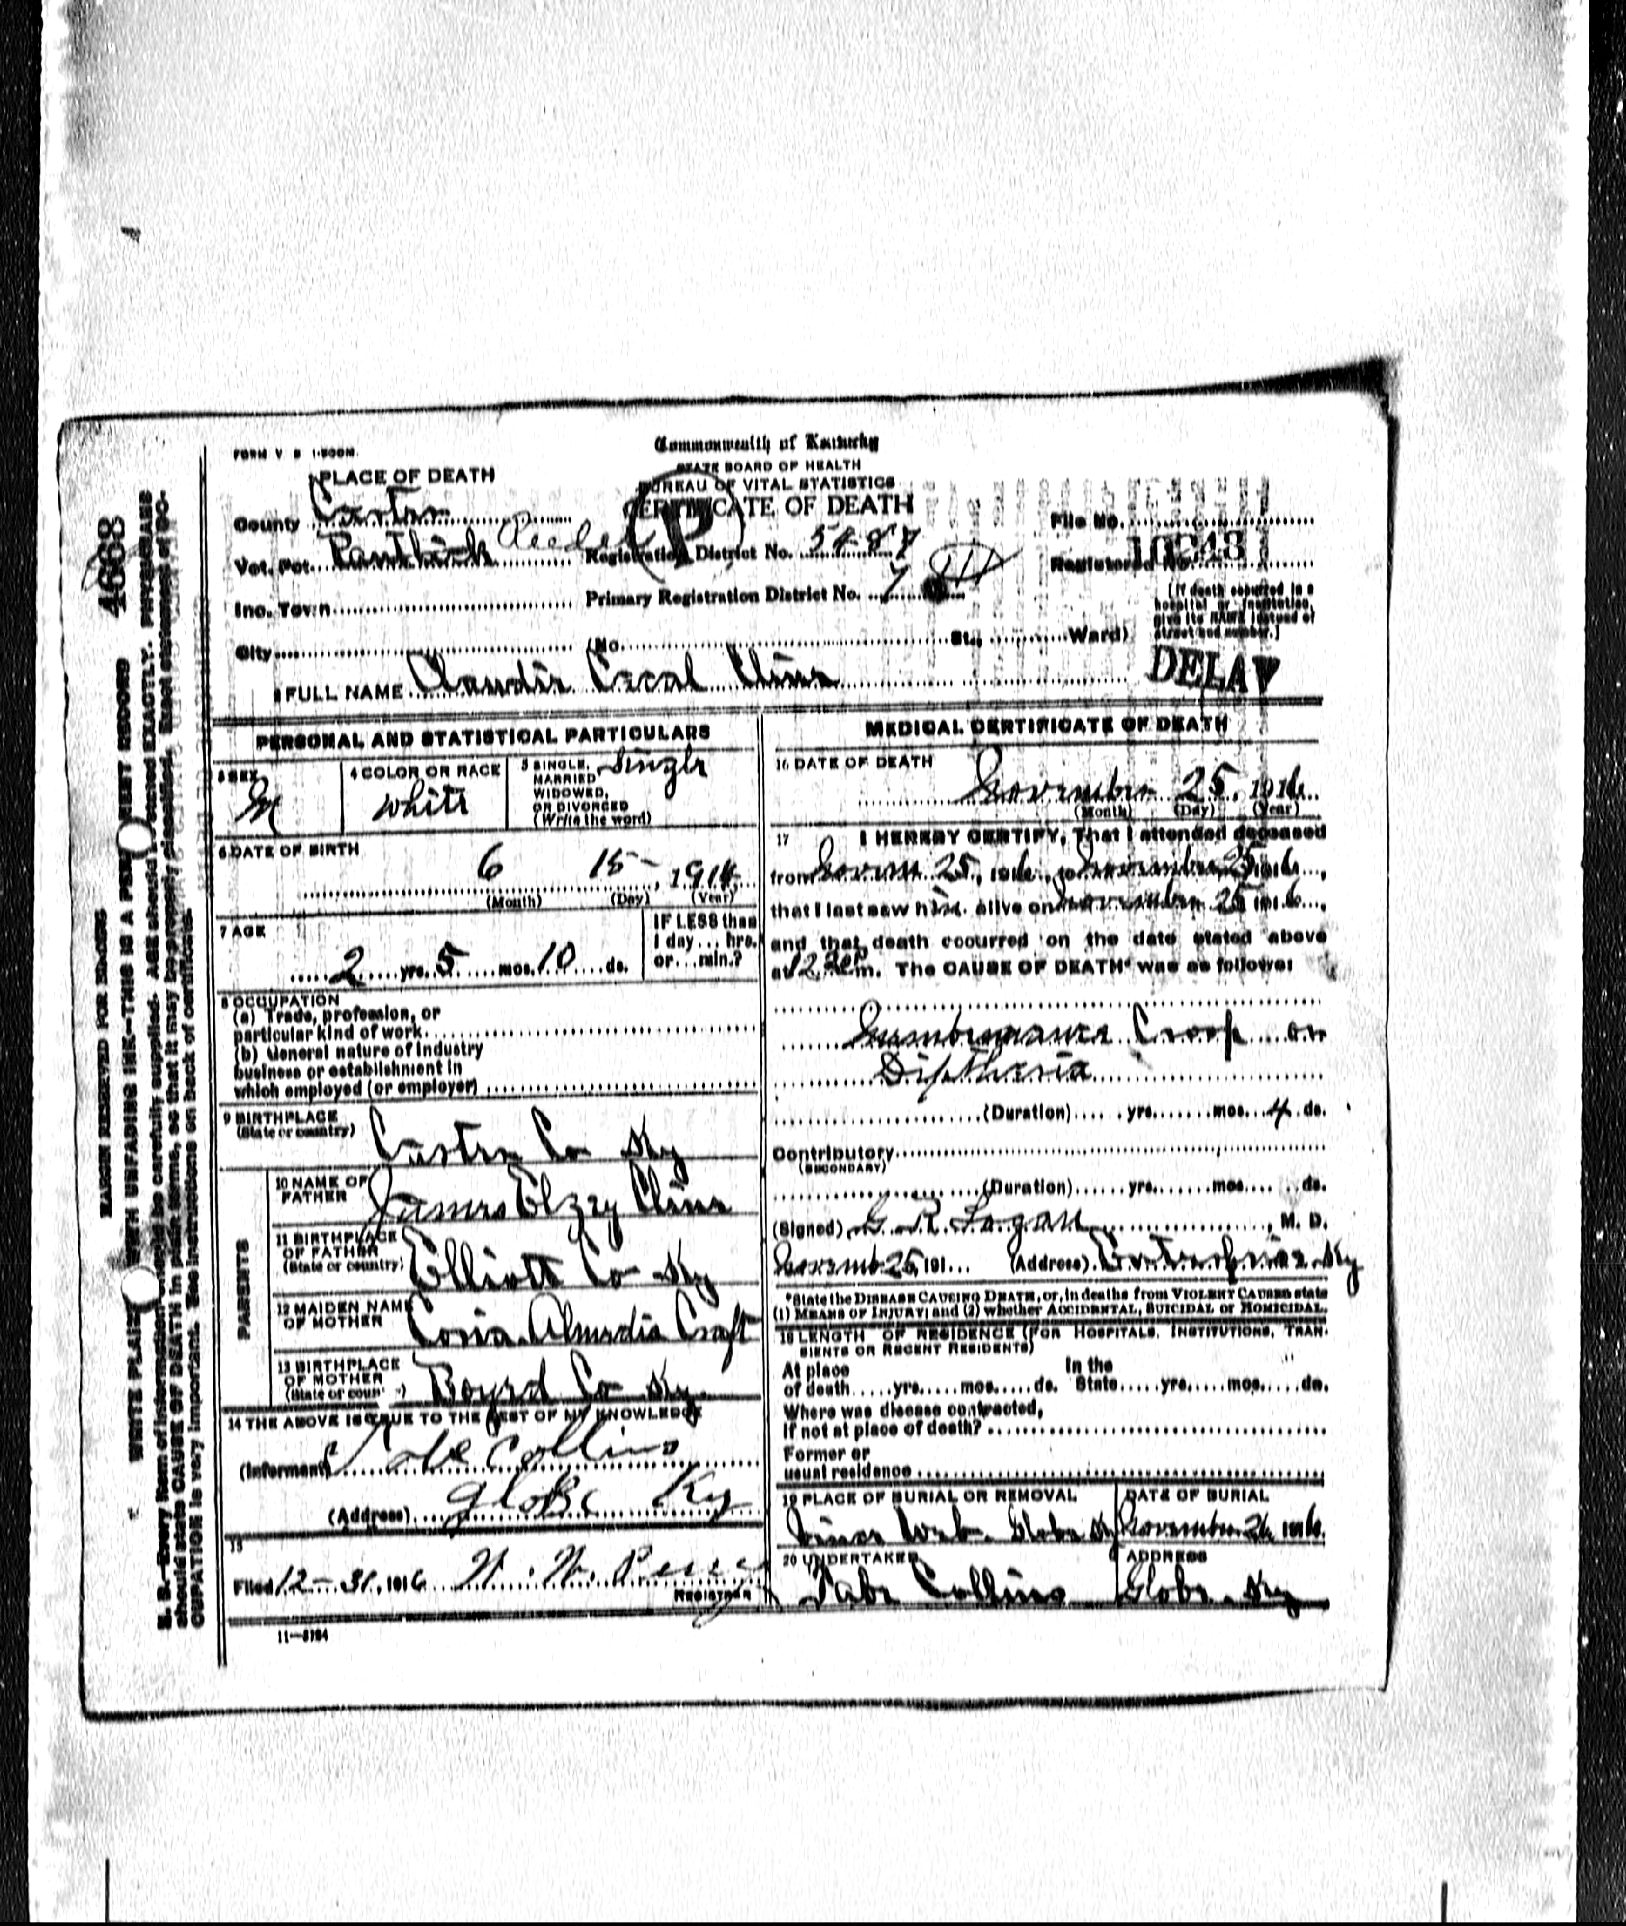 Commonwealth of Kentucky
STATE BOARD OF HEALTH
BUREAU OF VITAL STATISTICS
CERTIFICATE OF DEATH
FORM V S
PLACE OF DEATH
County Carter
Vot. Pct.
Registration District No.
File No.
Registered No.
Inc. Town
Primary Registration District No. 7
City (No. St., Ward)
[If death occurred in a
hospital or institution,
give its NAME instead of
street and number.]
FULL NAME Claudie Cecal Cline
DELAY
PERSONAL AND STATISTICAL PARTICULARS
3 SEX M
4 COLOR OR RACE white
5 SINGLE, MARRIED WIDOWED, OR DIVORCED (Write the word) Single
6 DATE OF BIRTH
6 15 , 1914
(Month) (Day) (Year)
7 AGE
2 yrs. 5 mos. 10 ds.
IF LESS than
1 day ... hrs.
or ... min.?
8 OCCUPATION
(a) Trade, profession, or
particular kind of work
(b) General nature of industry
business or establishment in
which employed (or employer)
9 BIRTHPLACE
(State or country) Carter Co Ky
PARENTS
10 NAME OF
FATHER James Elzey Cline
11 BIRTHPLACE
OF FATHER
(State or country) Elliott Co Ky
12 MAIDEN NAME
OF MOTHER Almedia Craft
13 BIRTHPLACE
OF MOTHER
(State or country) Boyd Co Ky.
14 THE ABOVE IS TRUE TO THE BEST OF MY KNOWLEDGE
(Informant) Collins
(Address) Globe Ky
15
Filed 12-31, 1916 W. W.
REGISTRAR
11-3184
MEDICAL CERTIFICATE OF DEATH
16 DATE OF DEATH
November 25, 1916
(Month) (Day) (Year)
17 I HEREBY CERTIFY, That I attended deceased
from 25, 1916, to November 25 1916,
that I last saw him alive on November 25 1916,
and that death occurred on the date stated above
at m. The CAUSE OF DEATH* was as follows:
Croop or
Diptheria
(Duration) yrs. mos. 4 ds.
Contributory
(SECONDARY)
(Duration) yrs. mos. ds.
(Signed) G. R. Logan, M. D.
25, 191... (Address) Enterprise Ky
*State the DISEASE CAUSING DEATH, or, in deaths from VIOLENT CAUSES state
(1) MEANS OF INJURY; and (2) whether ACCIDENTAL, SUICIDAL or HOMICIDAL.
18 LENGTH OF RESIDENCE (FOR HOSPITALS, INSTITUTIONS, TRAN-
SIENTS OR RECENT RESIDENTS)
At place In the
of death yrs. mos. ds. State yrs. mos. ds.
Where was disease contracted,
If not at place of death?
Former or
usual residence
19 PLACE OF BURIAL OR REMOVAL
Globe Ky
DATE OF BURIAL
November 26 1916
20 UNDERTAKER
Tabe Collins
ADDRESS
Globe Ky
MARGIN RESERVED FOR BINDING
WRITE PLAINLY WITH UNFADING INK—THIS IS A PERMANENT RECORD
N. B.—Every item of information should be carefully supplied. AGE should be stated EXACTLY. PHYSICIANS
should state CAUSE OF DEATH in plain terms, so that it may be properly classified. Exact statement of OC-
CUPATION is very important. See instructions on back of certificate.